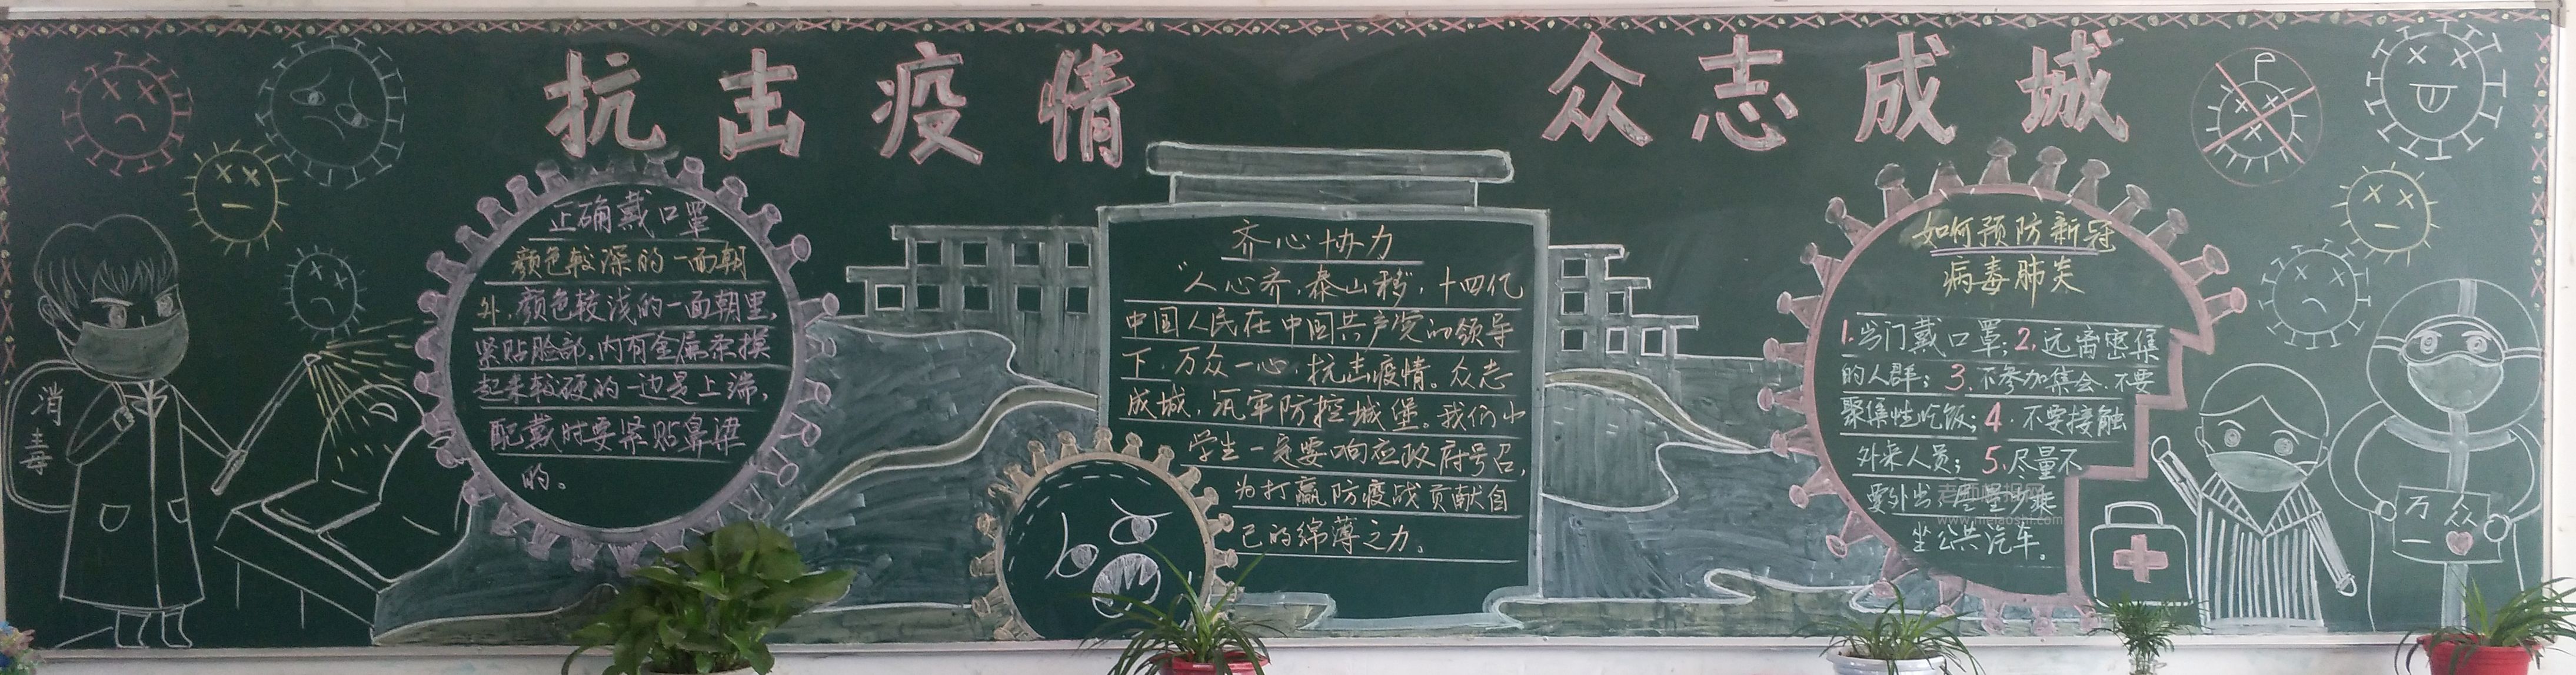 抗击疫情 众志成城
消毒
正确戴口罩
颜色较深的一面朝
外，颜色较浅的一面朝里，
紧贴脸部。内有金属条摸
起来较硬的一边是上端，
配戴时要紧贴鼻梁
的。
齐心协力
“人心齐，泰山移”，十四亿
中国人民在中国共产党的领导
下，万众一心，抗击疫情。众志
成城，筑牢防控城堡。我们小
学生一定要响应政府号召，
为打赢防疫战贡献自
己的绵薄之力。
如何预防新冠
病毒肺炎
1.出门戴口罩；2.远离密集
的人群；3.不参加集会，不要
聚集性吃饭；4.不要接触
外来人员；5.尽量不
要外出，尽量少乘
坐公共汽车。
万众
一